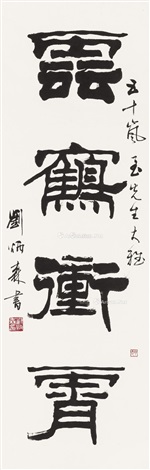 雲鶴衝霄
五十嵐玉先生大雅
劉炳森書